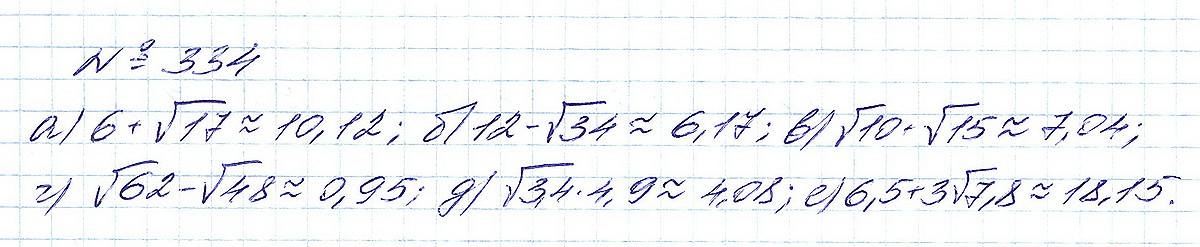 № 334
а) 6+√17 ≈ 10,12; б) 12-√34 ≈ 6,17; в) √10+√15 ≈ 7,04;
г) √62-√48 ≈ 0,95; д) √3,4·4,9 ≈ 4,08; е) 6,5+3√7,8 ≈ 18,15.